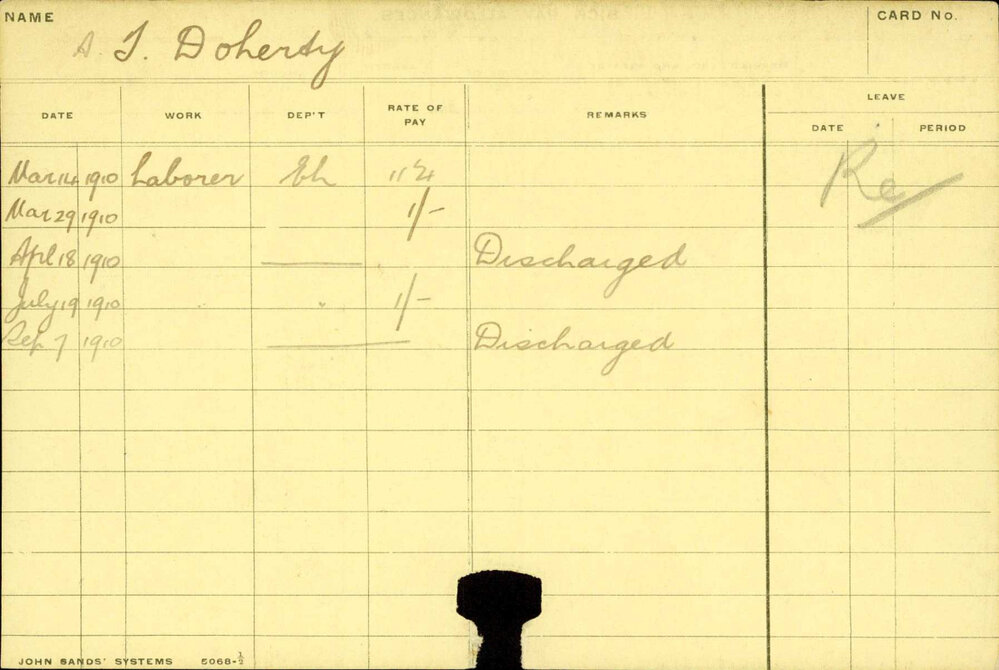 NAME
CARD No.
A. T. Doherty
DATE WORK DEP'T RATE OF PAY REMARKS LEAVE
DATE PERIOD
Mar 14 1910 Laborer Eh 11¾ Re
Mar 29 1910 1/-
Apl 18 1910 Discharged
July 19 1910 " 1/-
Sep 7 1910 Discharged
JOHN SANDS' SYSTEMS 5068-½